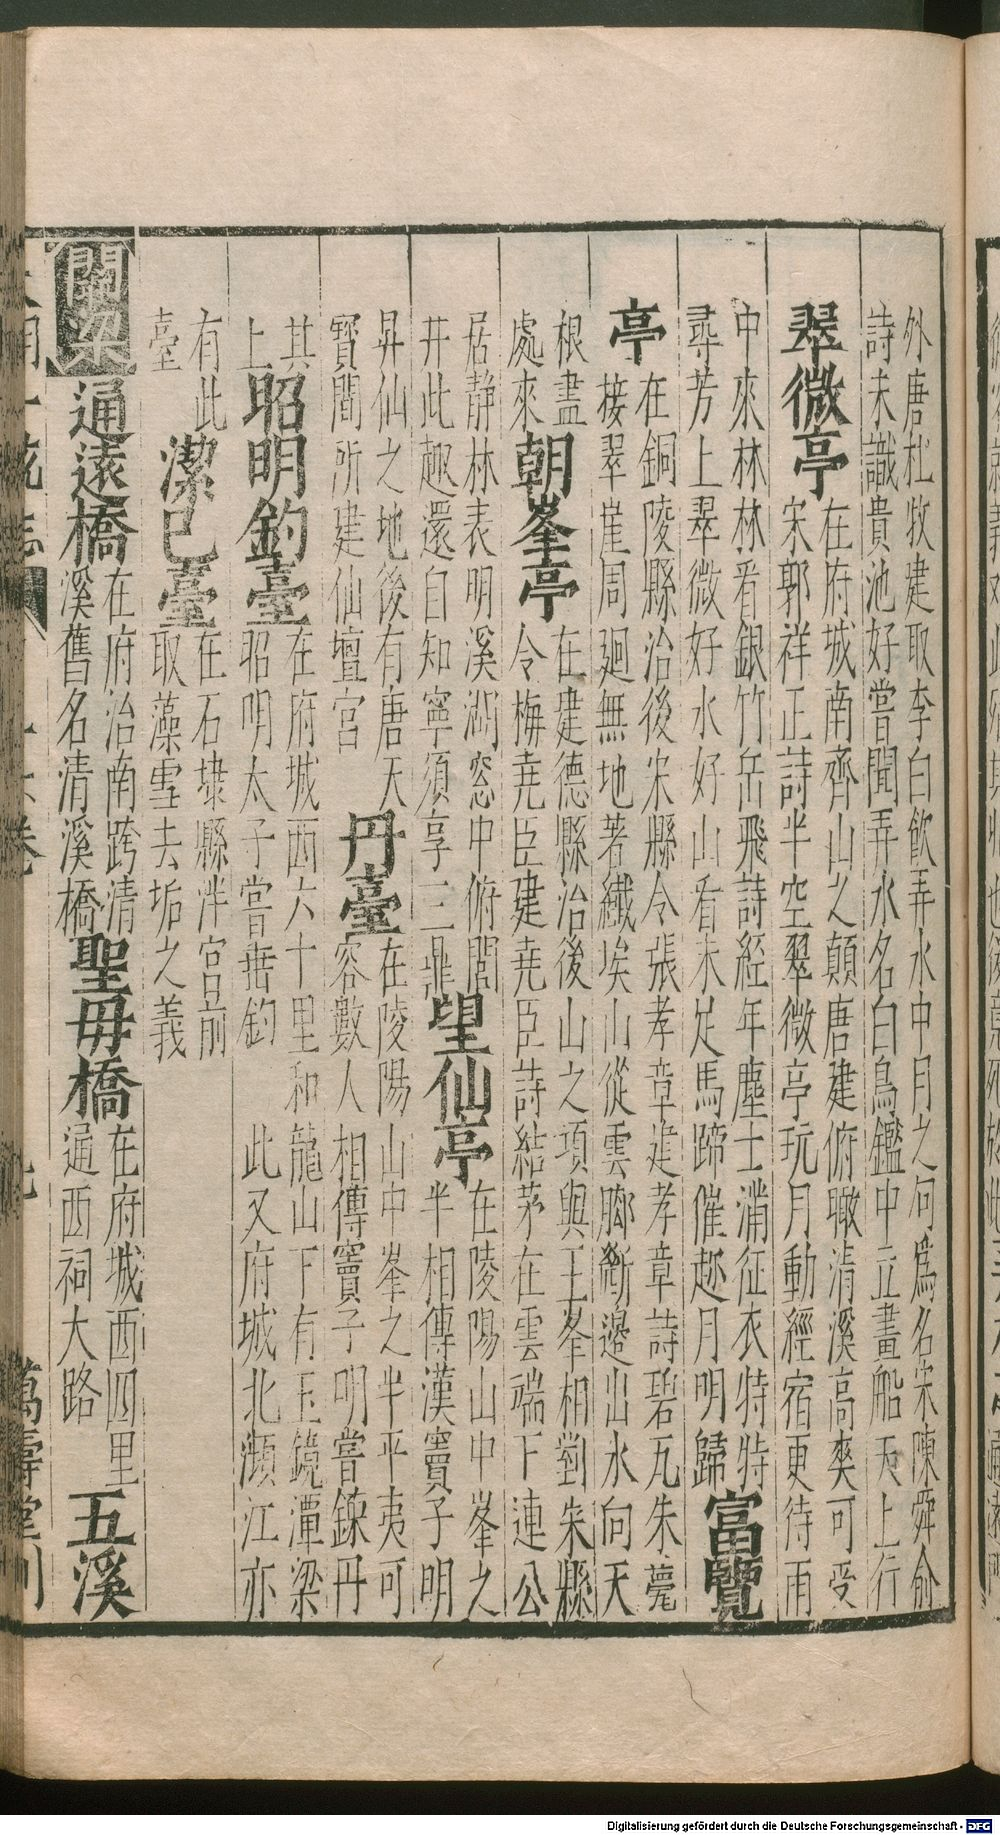 外唐杜牧建取李白飲弄水中月之句爲名宋陳舜俞
詩未識貴池好嘗聞弄水名白鳥鑑中立畫船天上行
翠微亭
在府城南齊山之顛唐建俯瞰清溪高爽可受
宋郭祥正詩半空翠微亭玩月動經宿更待雨
中來林林看銀竹岳飛詩經年塵土滿征衣特特
尋芳上翠微好水好山看未足馬蹄催趂月明歸
富覽
亭
在銅陵縣治後宋縣令張孝章建孝章詩碧瓦朱甍
接翠崖周廻無地著纖埃山從雲脚斷邊出水向天
根盡
處來
朝峯亭
在建德縣治後山之項與玉峯相對朱縣
令梅堯臣建堯臣詩結茅在雲端下連公
居静林表明溪湖窓中俯閭
井此趣還自知寧須享三鼎
望仙亭
在陵陽山中峯之
半相傳漢竇子明
昇仙之地後有唐天
寳間所建仙壇宫
丹臺
在陵陽山中峯之半平夷可
容數人相傳竇子明嘗鍊丹
其
上
昭明釣臺
在府城西六十里和龍山下有玉鏡潭梁
昭明太子嘗垂釣 此又府城北瀕江亦
有此
臺
潔己臺
在石埭縣泮宫前
取藻雪去垢之義
關梁
通遠橋
在府治南跨清
溪舊名清溪橋
聖毋橋
在府城西四里
通西祠大路
五溪
萬壽堂刊
Digitalisierung gefördert durch die Deutsche Forschungsgemeinschaft - DFG